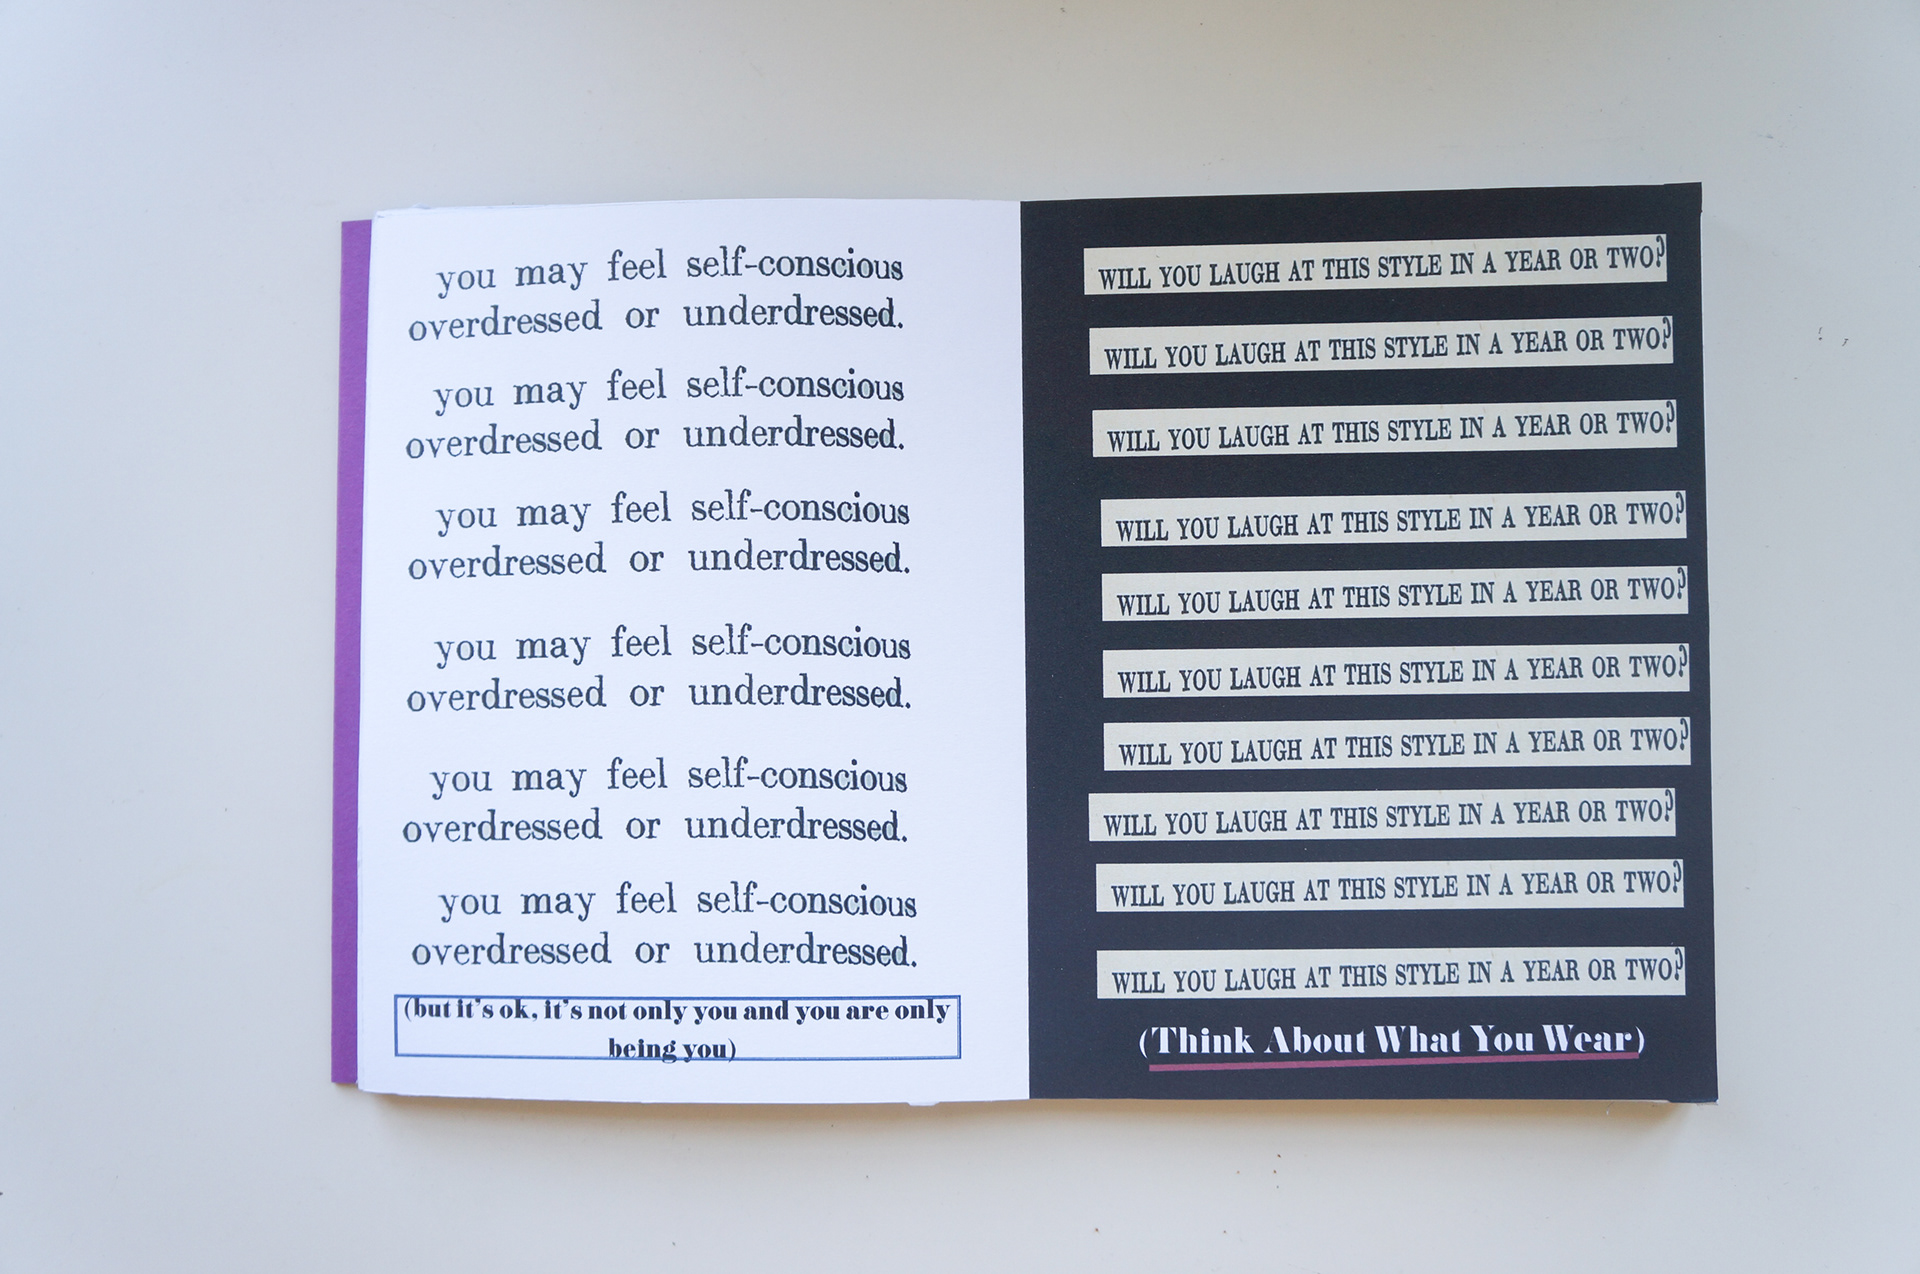 you may feel self-conscious
overdressed or underdressed.
you may feel self-conscious
overdressed or underdressed.
you may feel self-conscious
overdressed or underdressed.
you may feel self-conscious
overdressed or underdressed.
you may feel self-conscious
overdressed or underdressed.
you may feel self-conscious
overdressed or underdressed.
(but it's ok, it's not only you and you are only
being you)
WILL YOU LAUGH AT THIS STYLE IN A YEAR OR TWO?
WILL YOU LAUGH AT THIS STYLE IN A YEAR OR TWO?
WILL YOU LAUGH AT THIS STYLE IN A YEAR OR TWO?
WILL YOU LAUGH AT THIS STYLE IN A YEAR OR TWO?
WILL YOU LAUGH AT THIS STYLE IN A YEAR OR TWO?
WILL YOU LAUGH AT THIS STYLE IN A YEAR OR TWO?
WILL YOU LAUGH AT THIS STYLE IN A YEAR OR TWO?
WILL YOU LAUGH AT THIS STYLE IN A YEAR OR TWO?
WILL YOU LAUGH AT THIS STYLE IN A YEAR OR TWO?
WILL YOU LAUGH AT THIS STYLE IN A YEAR OR TWO?
(Think About What You Wear)